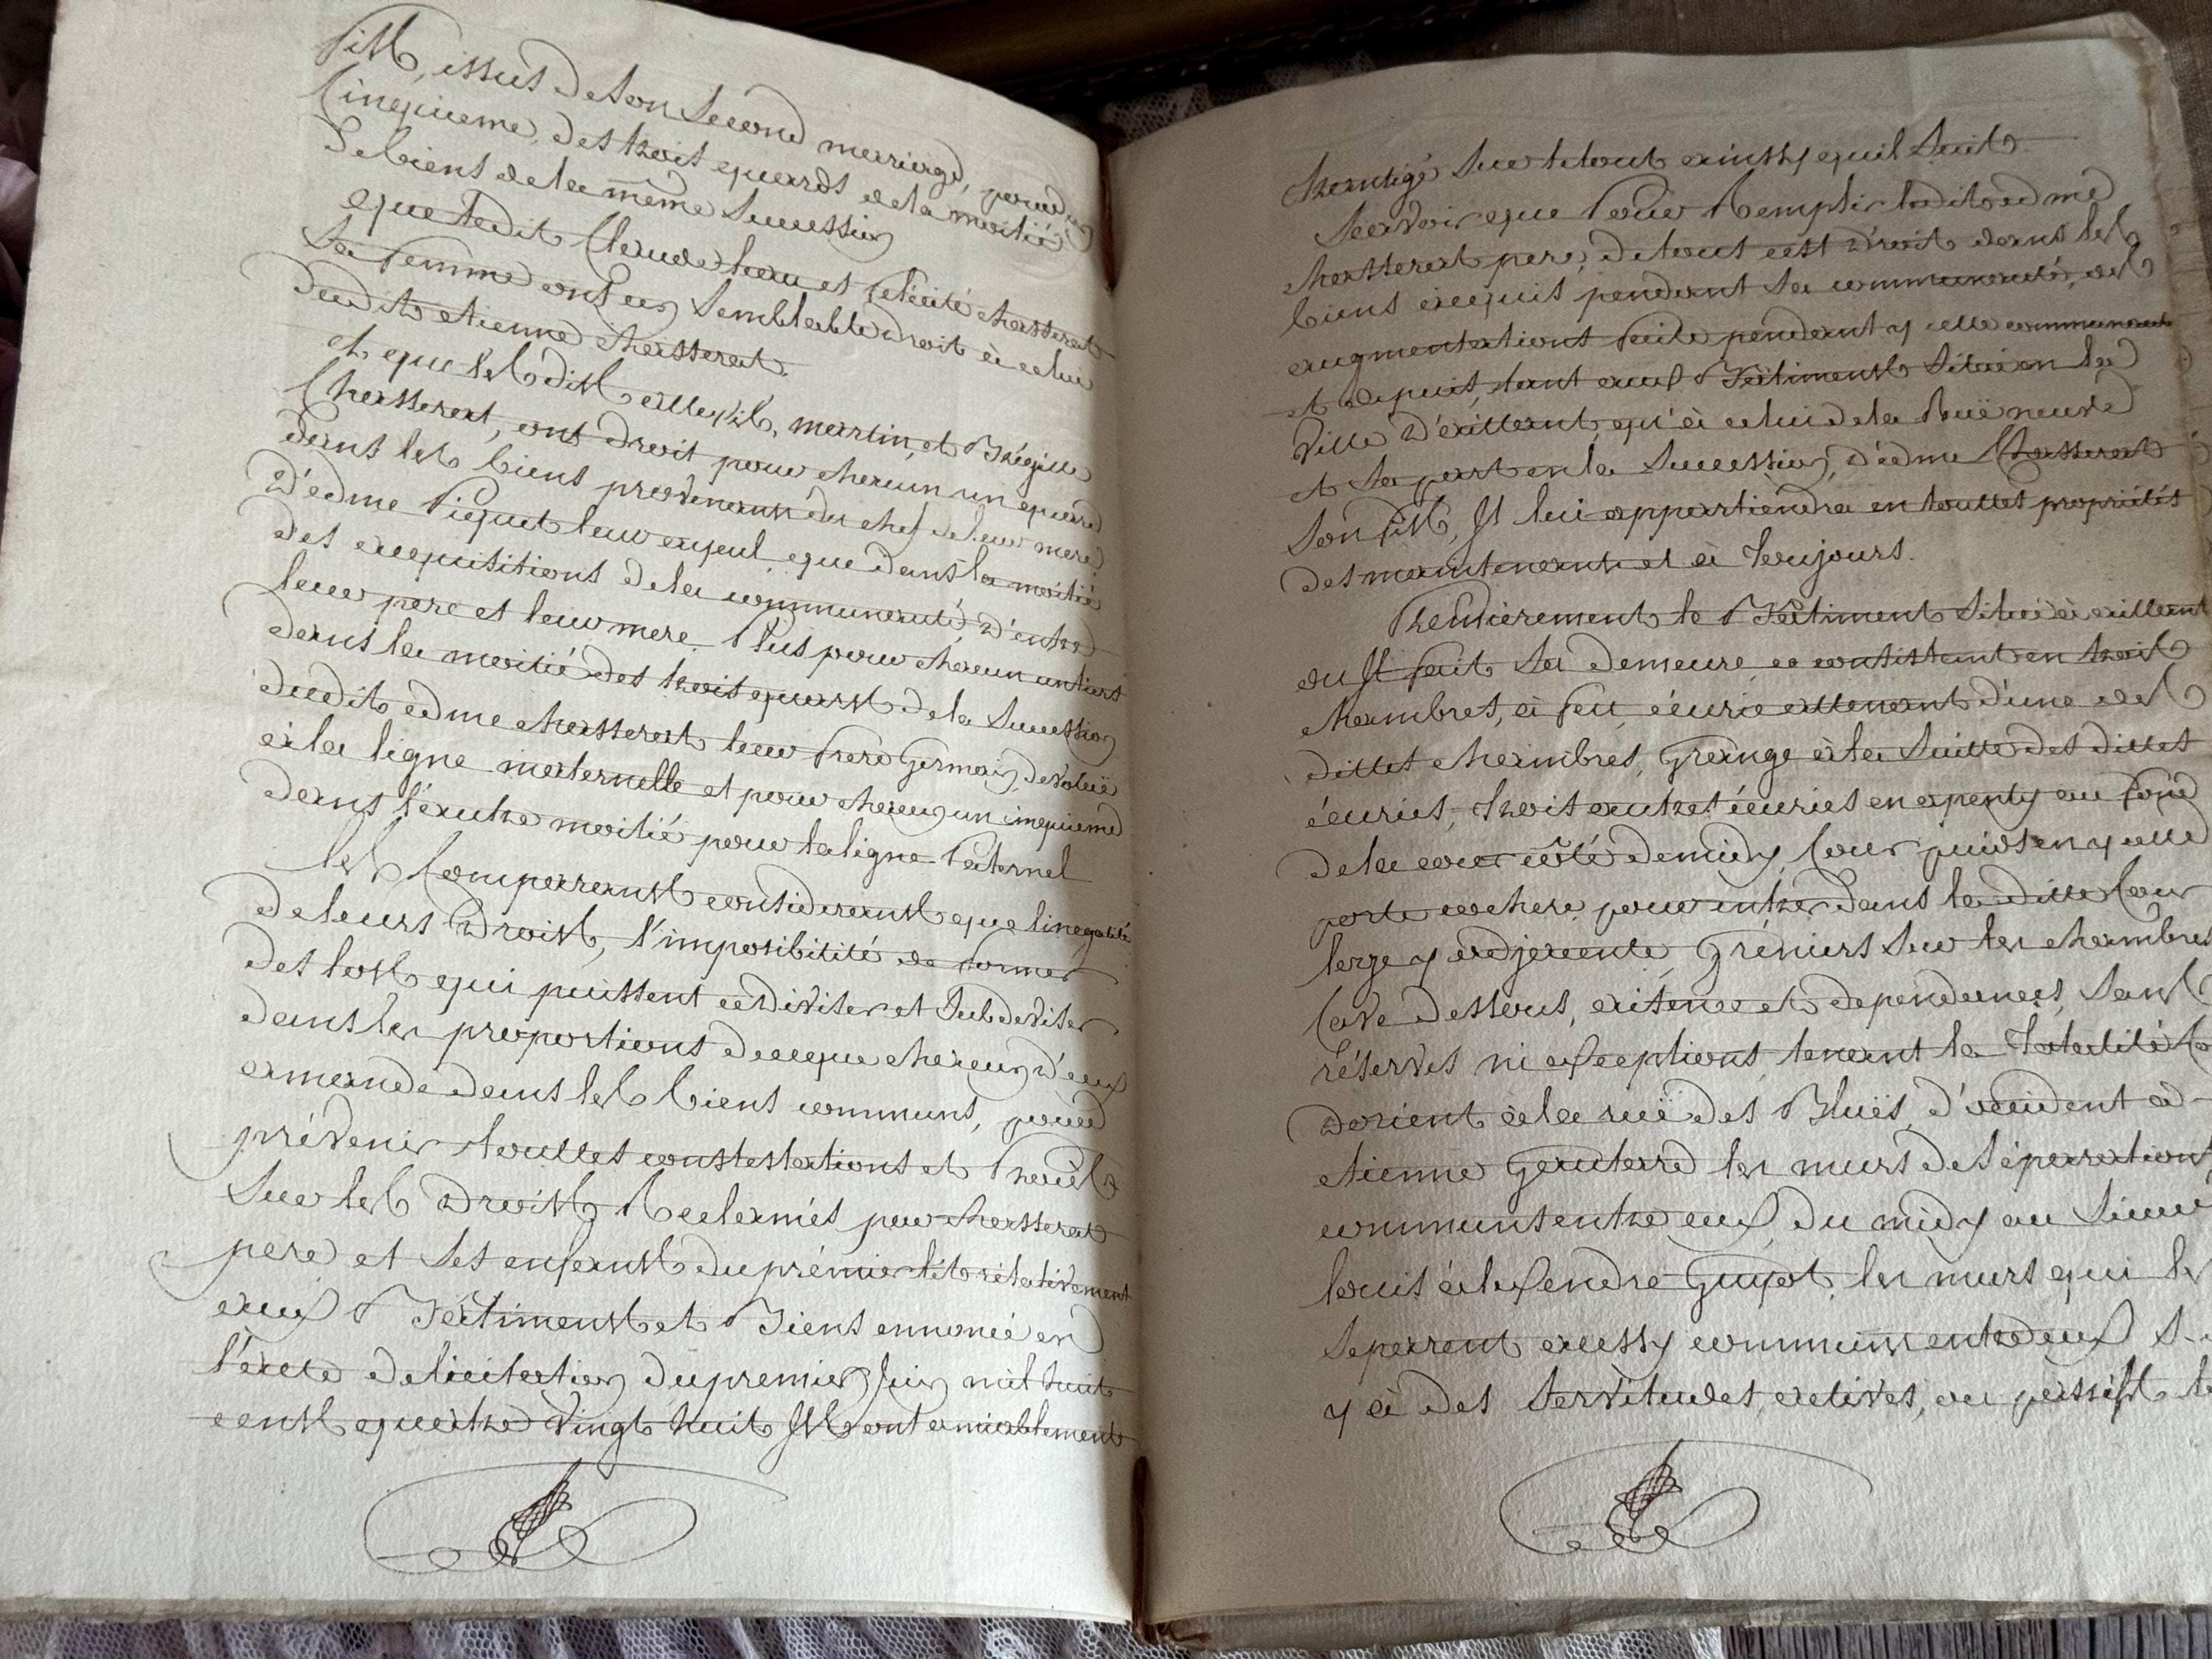 fils, issus de son second mariage, pour un
Cinquieme, des trois quards de la moitié
de biens de la même Succession
que ledit Claude hau et felicité chasserat
Sa femme ont un Semblable droit à celui
dudit etienne chasserat.
et que lesdits Martin, et Brégille
Chasserat, ont droit pour chacun un quard
dans les biens provenants du chef de leur mere
d'edme Piquet leur ayeul, que dans la moitié
des acquisitions de la communauté, d'entre
leur pere et leur mere. Plus pour chacun un tiers
dans la moitié des trois quarts de la Succession
dudit edme chasserat leur frere Germain, devolue
à la ligne maternelle et pour chacun un cinquieme
dans l'autre moitié pour la ligne Paternel
les Comparrants considerants que l'inegalité
de leurs Droits, l'imposibitité de former
des lots qui puissent se diviser et Subdeviser
dans les proportions de ce que chacun d'eux
amande dans les biens communs, pour
prévenir touttes constestations et Procès
Sur les Droits Reclamés par chasserat
pere et Ses enfants du prémier lit rélativement
aux Batiments et Biens ennoncé en
l'acte de licitation du premier Juin mil huit
cents quatre vingt huit Ils ont amiablement
Partagé Sur le tout ainsy quil Suit
Scavoir que Pour Remplir ledit edme
chasserat pere, de tout cest droit dans les
biens acquit pendant sa communauté, des
augmentations faite pendant ycelle communauté
et depuis, tant aux Batiments Situé en la
Ville d'aillant, qu'à celui de la Ruë neuve
et Sa part en la Succession, d'edme Chasserat
Son fils, Il lui appartiendra en touttes propriétés
des maintenant et à Toujours.
Premierement le Batiment Situé à aillant
ou Il fait Sa demeure, consistant en trois
chambres, à feu, écurie attenant d'une des
dittes chambres, Grange à la Suitte des dittes
écuries, trois autres écuries en apenty au fond
de la cour côté de midy, Cour, puits en ycelle
porte cochere pour entrer dans la ditte Cour
large y adjacente, Gréniers Sur les chambres
Cave dessous, aisence et dependances, Sans
réserves ni exceptions, tenant la Totalité
d'orient à la ruë des Bluës, d'occident à
etienne Gauterre les murs de Séparations
communs entre eux, du midy au Sieur
louis alexendre Guyot, les murs qui les
Séparent aussy communs entre eux
y à des Servitudes actives, ou passifs